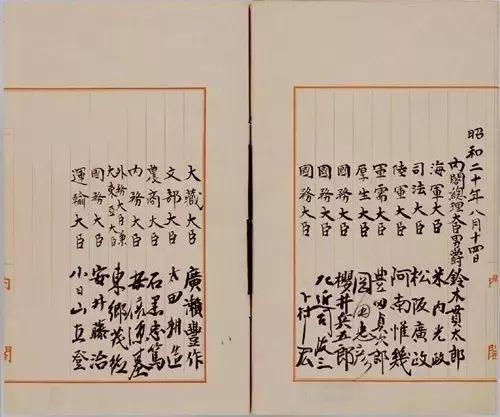 昭和二十年八月十四日
內閣總理大臣男爵 鈴木貫太郎
海軍大臣 米内光政
司法大臣 松阪廣政
陸軍大臣 阿南惟幾
軍需大臣 豊田貞次郎
厚生大臣 岡田忠彦
國務大臣 櫻井兵五郎
國務大臣 左近司政三
國務大臣 下村宏
大藏大臣 廣瀬豊作
文部大臣 太田耕造
農商大臣 石黒忠篤
内務大臣 安倍源基
外務大臣兼大東亞大臣 東郷茂徳
國務大臣 安井藤治
運輸大臣 小日山直登
内閣
内閣